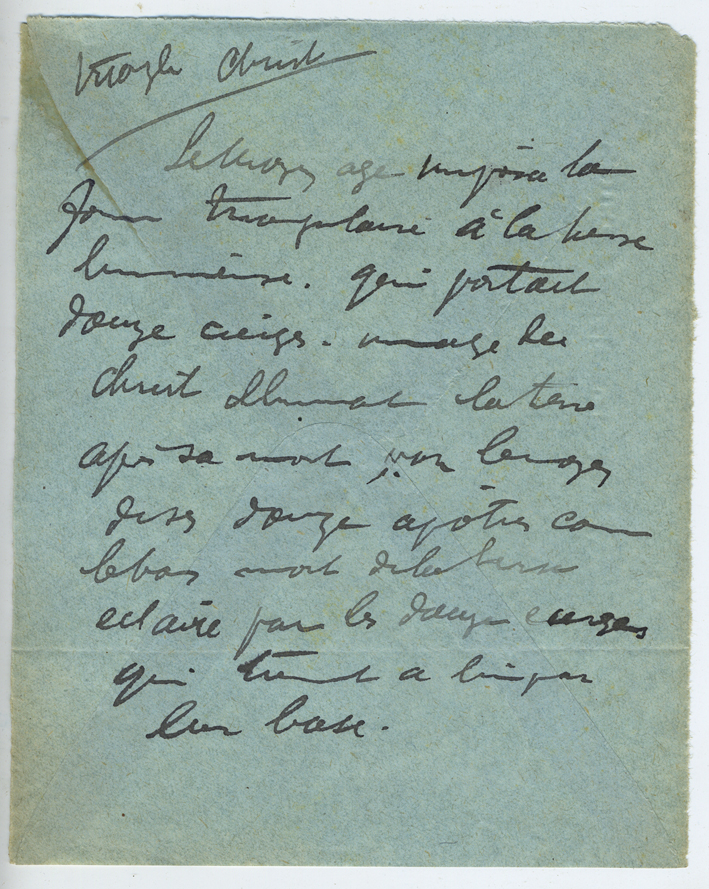 Triangle Christ
Le Moyen age imposa la
forme triangulaire à la herse
lumineuse. qui portait
douze cierges. image du
Christ illuminant la terre
après sa mort par le moyen
de ses douze apôtres comme
le bois mort de la herse
eclairé par les douze cierges
qui tiennent a lui par
leur base.